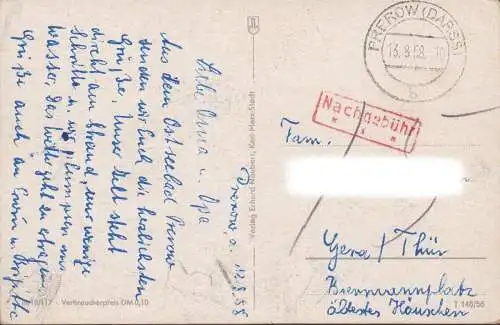 Prerow, d. 12.8.58
Liebe Oma u. Opa
Aus dem Ostseebad Prerow
senden wir Euch die herzlichsten
Grüße. Unser Zelt steht
direkt am Strand, nur wenige
Schritte u. wir plumpsen ins
Wasser, das zu ertragen.
Grüße auch an Erwin u. Brigitte
Verlag Erhard Neubert, Karl-Marx-Stadt
Verbraucherpreis DM 0,10
PREROW (DARSS)
13.8.58.-10
b
Nachgebühr
Fam.
Gera / Thür
Biermannplatz
ältestes Häuschen
T 146/56